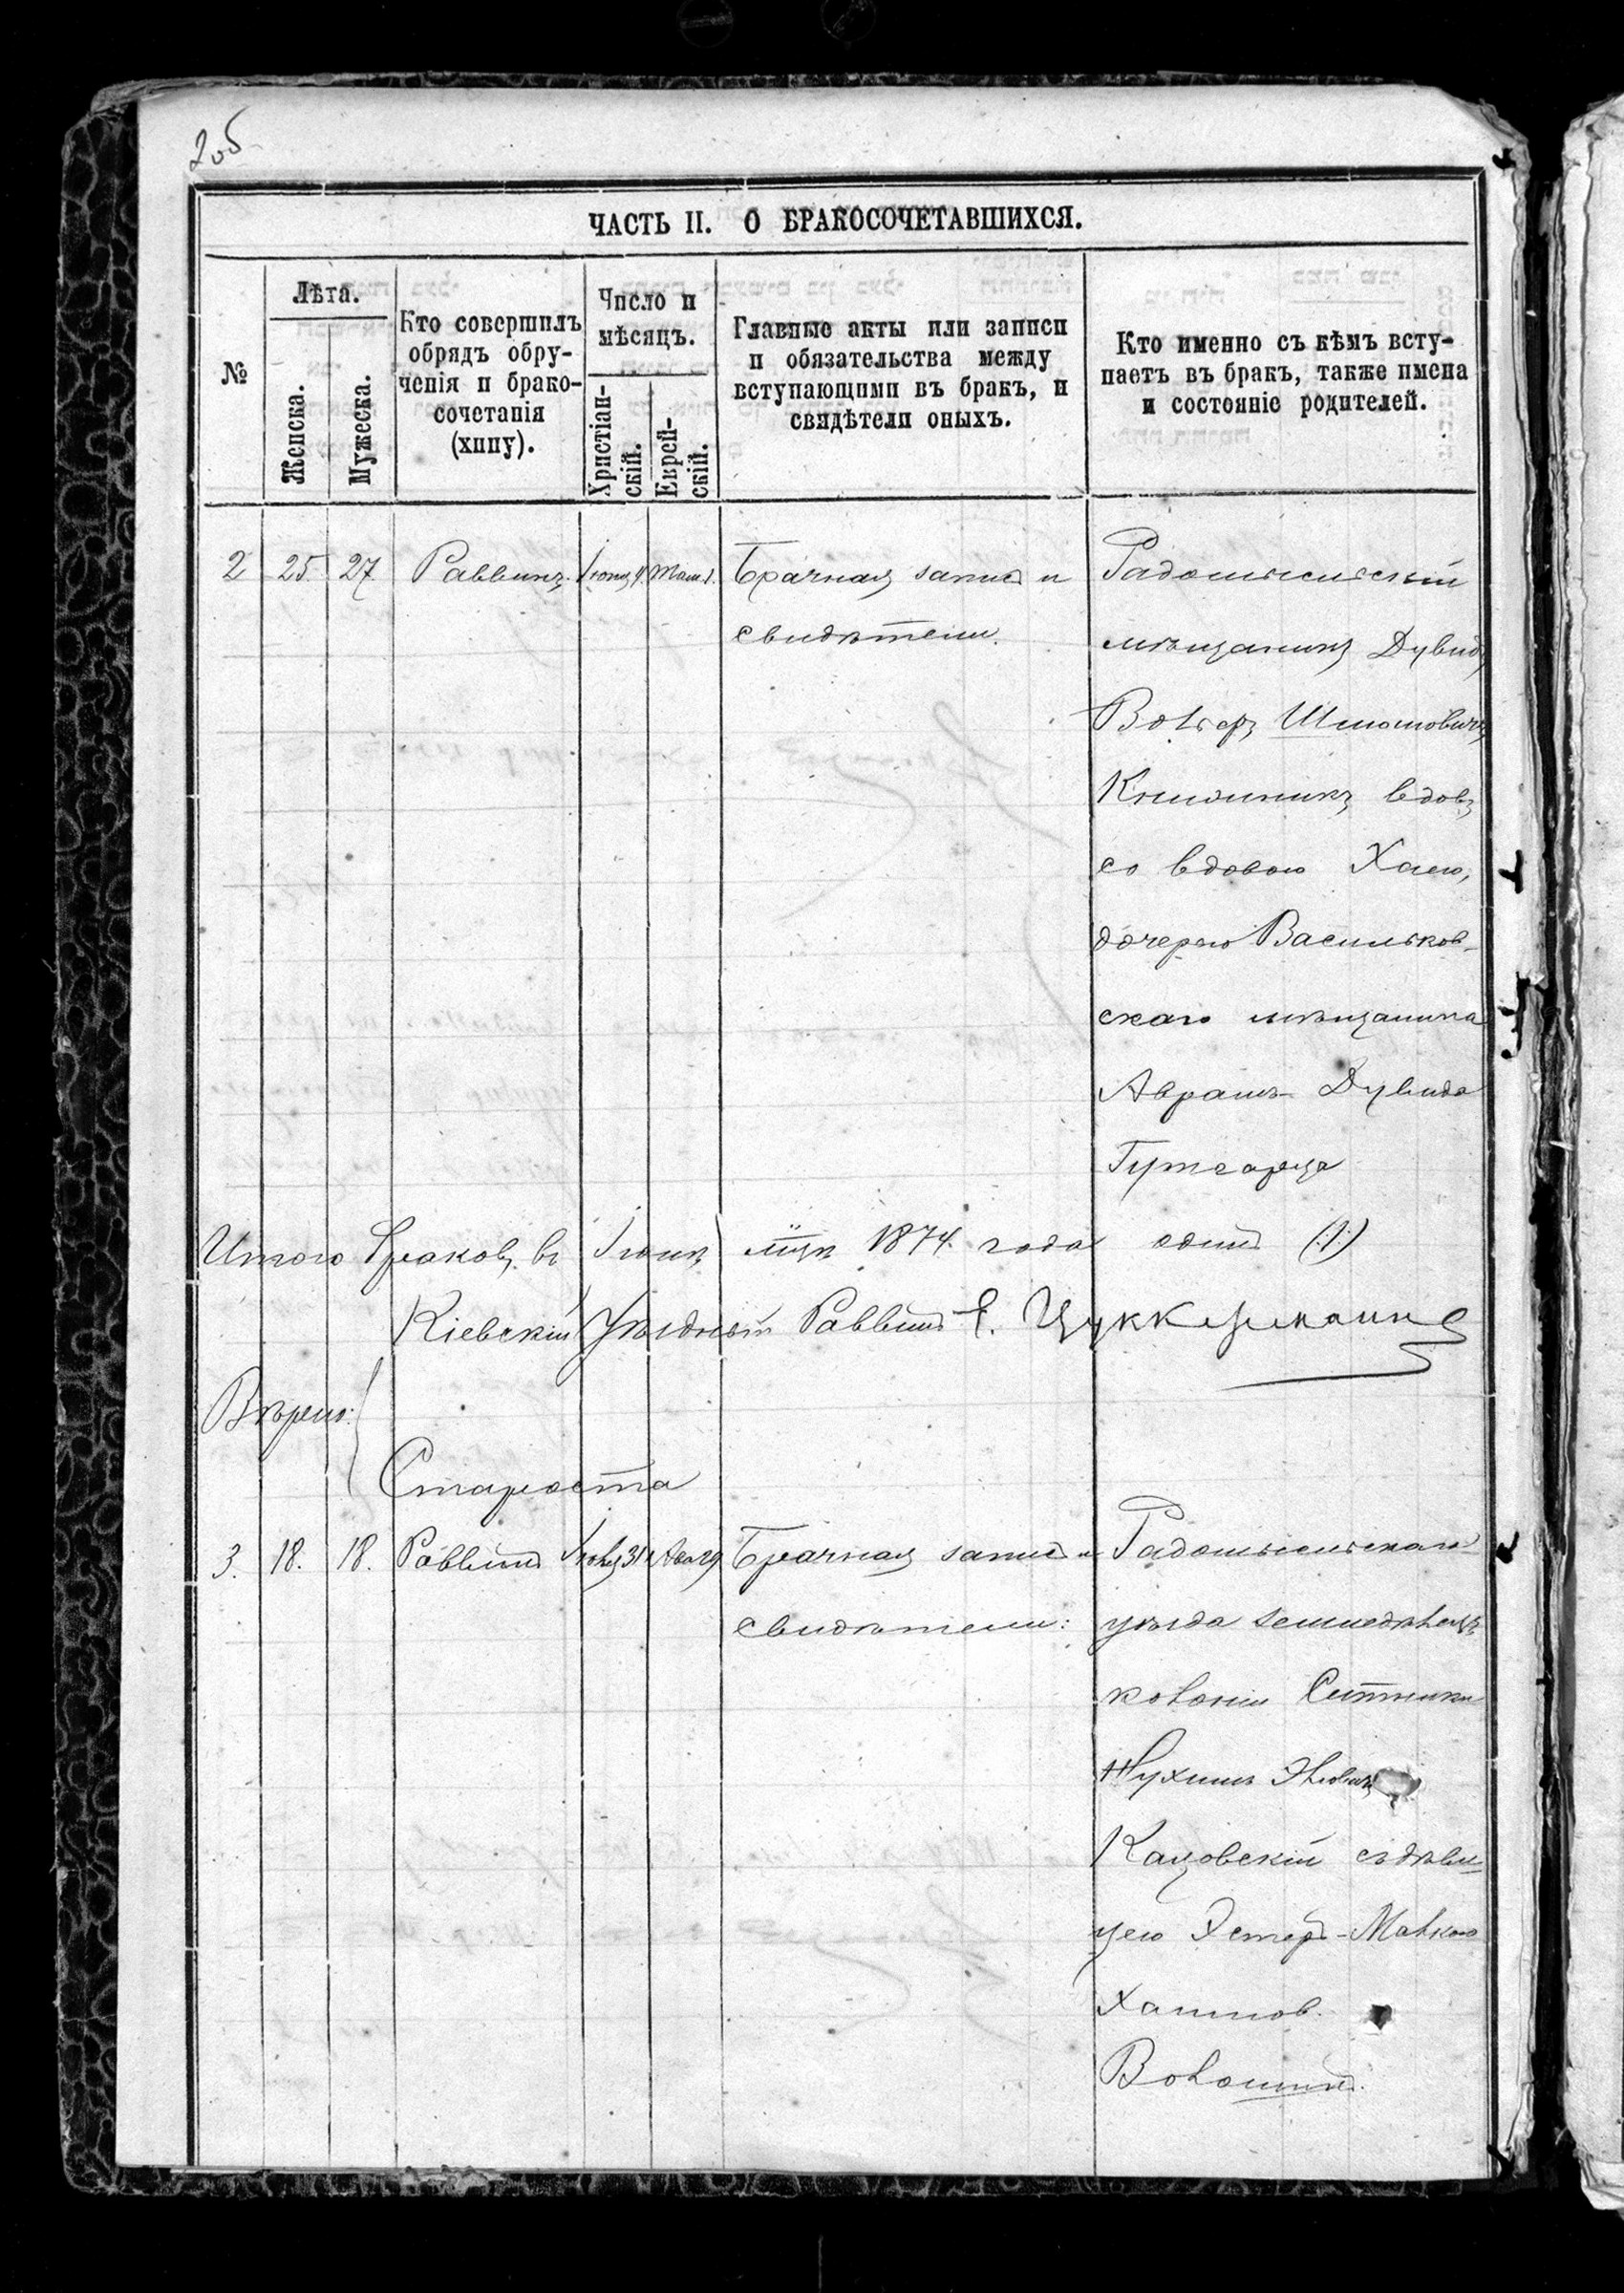 205
ЧАСТЬ II. О БРАКОСОЧЕТАВШИХСЯ.
№
Лѣта.
Женска.
Мужеска.
Кто совершилъ
обрядъ обру-
ченія и брако-
сочетанія
(хипу).
Число и
мѣсяцъ.
Христіан-
скій.
Еврей-
скій.
Главные акты или записи
и обязательства между
вступающими въ бракъ, и
свидѣтели оныхъ.
Кто именно съ кѣмъ всту-
паетъ въ бракъ, также имена
и состояніе родителей.
2 25. 27 Раввинъ. Іюня 4. Там. 1. Брачная запись и Радомысльскій
свидѣтели. мѣщанинъ Дувидъ
Вольфъ Шмоловичъ
вдовъ
со вдовою Хаею,
дочерью Васильков-
скаго мѣщанина
Аврамъ-Дувида
Гутгарца
Итого браковъ въ Іюнѣ мцѣ 1874 года одинъ (1)
Кіевскій Уѣздный Раввинъ Е. Цуккерманъ
Вѣрно:
Староста
3. 18. 18. Раввинъ 31 Брачная запись и Радомысльскаго
свидѣтели: уѣзда земледѣлецъ
колоніи Ситники
Нухимъ
Кацовскій съ дѣви-
цею Эстеръ-Малкою
Хаимов.
Волошинъ.